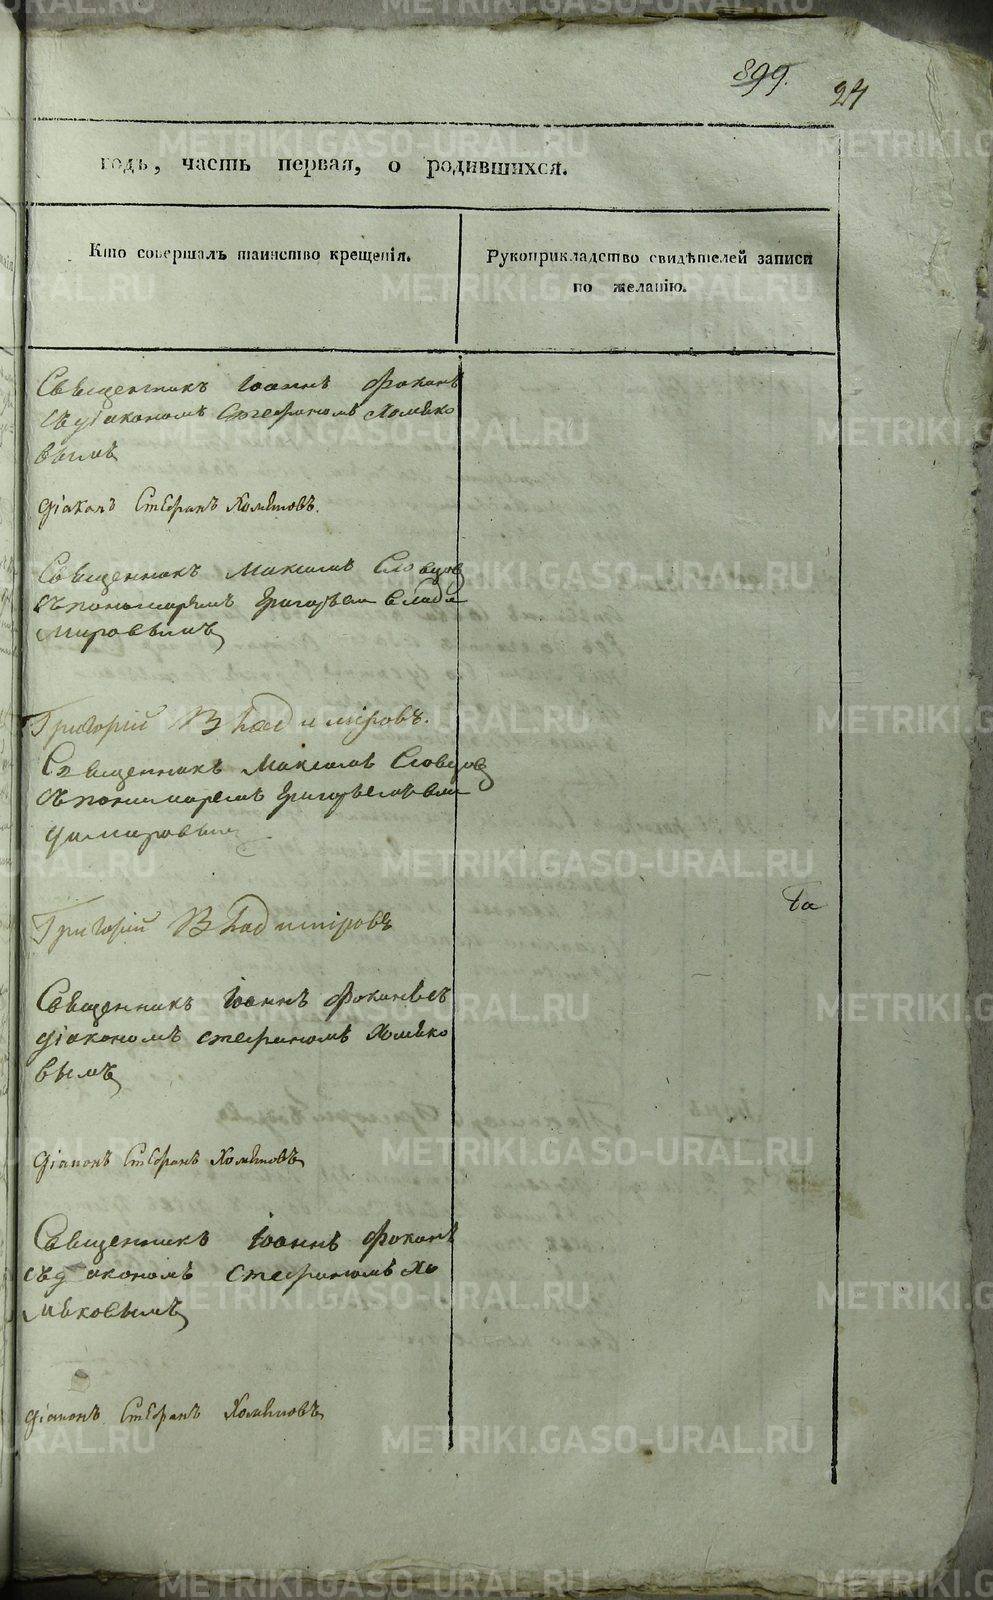 899. 24
годъ, часть первая, о родившихся.
Кто совершалъ таинство крещенія.
Рукоприкладство свидѣтелей записи
по желанію.
Священникъ Іоаннъ Фокинъ
съ діакономъ Стефаномъ Хомѣко
вымъ
діаконъ Стефанъ Хомѣковъ.
Священникъ Максимъ Словцов
съ пономаремъ Григорьем Влади
мировымъ
Григорій Владиміровъ.
Священникъ Максимъ Словцов
съ пономаремъ Григорьемъ Вла
димировым
Григорій Владиміровъ
Священникъ Іоаннъ Фокинъ съ
діакономъ Стефаномъ Хомѣко
вымъ
діаконъ Стефанъ Хомѣковъ
Священникъ Іоаннъ Фокинъ
съ діакономъ Стефаномъ Хо
мѣковымъ
діаконъ Стефанъ Хомѣковъ
METRIKI.GASO-URAL.RU